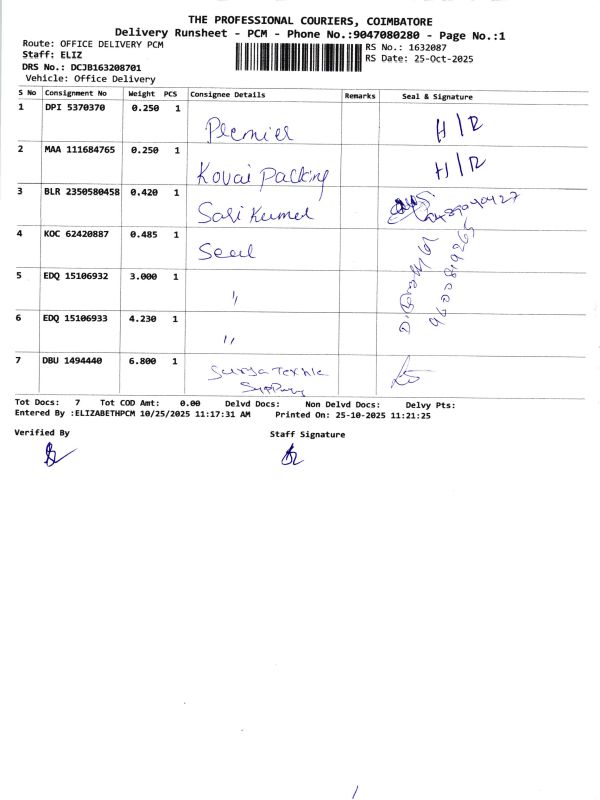 THE PROFESSIONAL COURIERS, COIMBATORE
Delivery Runsheet - PCM - Phone No.:9047080280 - Page No.:1
Route: OFFICE DELIVERY PCM
RS No.: 1632087
Staff: ELIZ
RS Date: 25-Oct-2025
DRS No.: DCJB163208701
Vehicle: Office Delivery
S No Consignment No Weight PCS Consignee Details Remarks Seal & Signature
1 DPI 5370370 0.250 1 Premier H/R
2 MAA 111684765 0.250 1 Kovai Packing H/R
3 BLR 2350580458 0.420 1 Sasi Kumar
4 KOC 62420887 0.485 1 Seeul
5 EDQ 15106932 3.000 1 "
6 EDQ 15106933 4.230 1 "
7 DBU 1494440 6.800 1 Surya
Tot Docs: 7 Tot COD Amt: 0.00 Delvd Docs: Non Delvd Docs: Delvy Pts:
Entered By :ELIZABETHPCM 10/25/2025 11:17:31 AM Printed On: 25-10-2025 11:21:25
Verified By Staff Signature